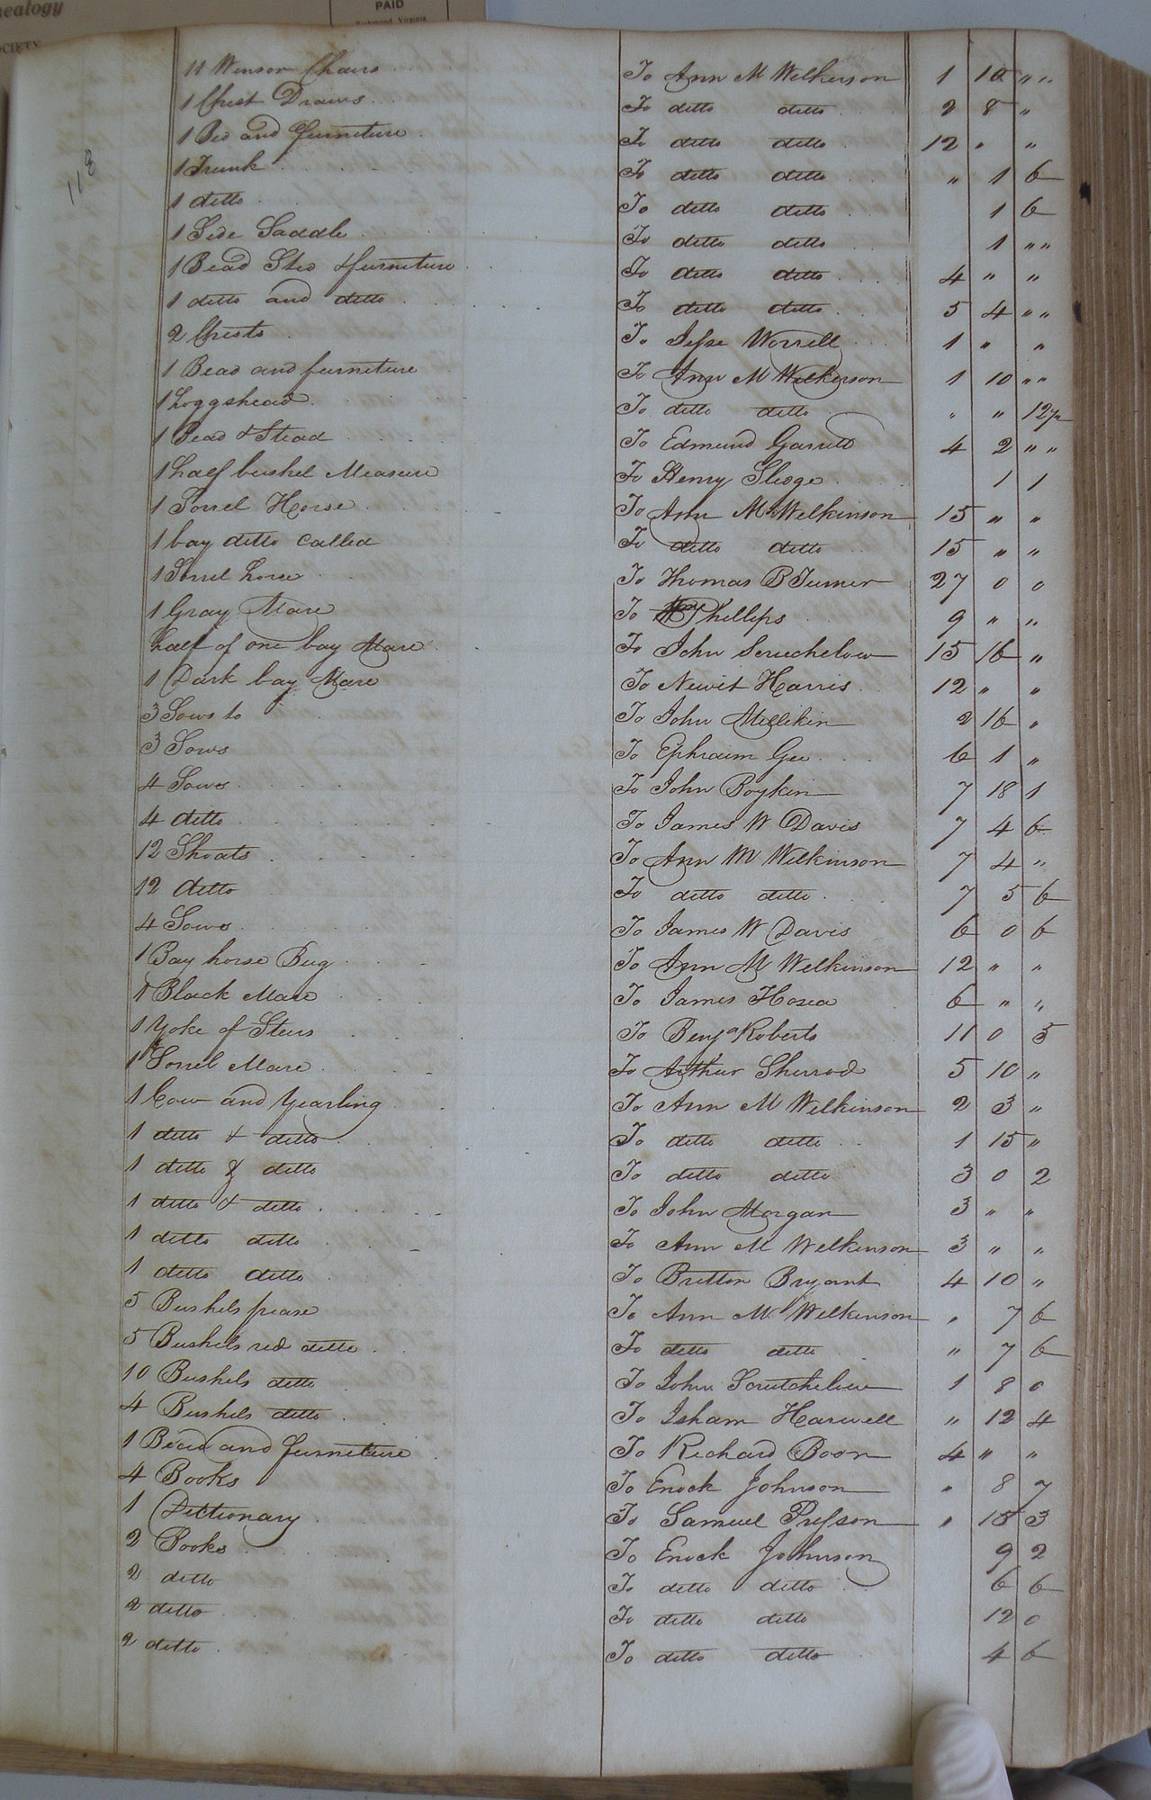 nealogy
OCIETY
PAID
Richmond, Virginia
118
11 Winsor Chairs To Ann M Wilkerson 1 10 " "
1 Chest Draws To ditto ditto 2 8 "
1 Bed and furniture To ditto ditto 12 " "
1 Trunk To ditto ditto " 1 6
1 ditto To ditto ditto 1 6
1 Side Saddle To ditto ditto 1 " "
1 Bead Sted & furniture To ditto ditto 4 " "
1 ditto and ditto To ditto ditto 5 4 " "
2 Chests To Jesse Worrell 1 " "
1 Bead and furniture To Ann M Wilkerson 1 10 " "
1 hoggshead To ditto ditto " "
1 Bead & Stead To Edmund Garrett 4 2 " "
1 half bushel Measure To Henry Sledge 1 1
1 Sorrel Horse To Ann M Wilkinson 15 " "
1 bay ditto called To ditto ditto 15 " "
1 Sorrel horse To Thomas B Turner 27 0 0
1 Gray Mare To Phillips 9 " "
half of one bay Mare To John 15 16 "
1 Dark bay Mare To Newit Harris 12 " "
3 Sows to To John Millikin 2 16 "
3 Sows To Ephraim Gee 6 1 "
4 Sows To John Boykin 7 18 1
4 ditto To James W Davis 7 4 6
12 Shoats To Ann M Wilkinson 7 4 "
12 ditto To ditto ditto 7 5 6
4 Sows To James W Davis 6 0 6
1 Bay horse Bug To Ann M Wilkinson 12 " "
1 Black Mare To James Hosea 6 " "
1 Yoke of Steers To Benja Roberts 11 0 5
1 Sorrel Mare To Arthur Sherrod 5 10 "
1 Cow and Yearling To Ann M Wilkinson 2 3 "
1 ditto & ditto To ditto ditto 1 15 "
1 ditto & ditto To ditto ditto 3 0 2
1 ditto & ditto To John Morgan 3 " "
1 ditto ditto To Ann M Wilkinson 3 " "
1 ditto ditto To Britton Bryant 4 10 "
5 Bushels pease To Ann M Wilkinson " 7 6
5 Bushels red ditto To ditto ditto " 7 6
10 Bushels ditto To John Scrutchelow 1 8 0
4 Bushels ditto To Isham Harwell " 12 4
1 Bead and furniture To Richard Boon 4 " "
4 Books To Enock Johnson " 8 7
1 Dictionary To Samuel Presson " 15 3
2 Books To Enock Johnson 9 2
2 ditto To ditto ditto 6 6
2 ditto To ditto ditto 12 0
2 ditto To ditto ditto 4 6